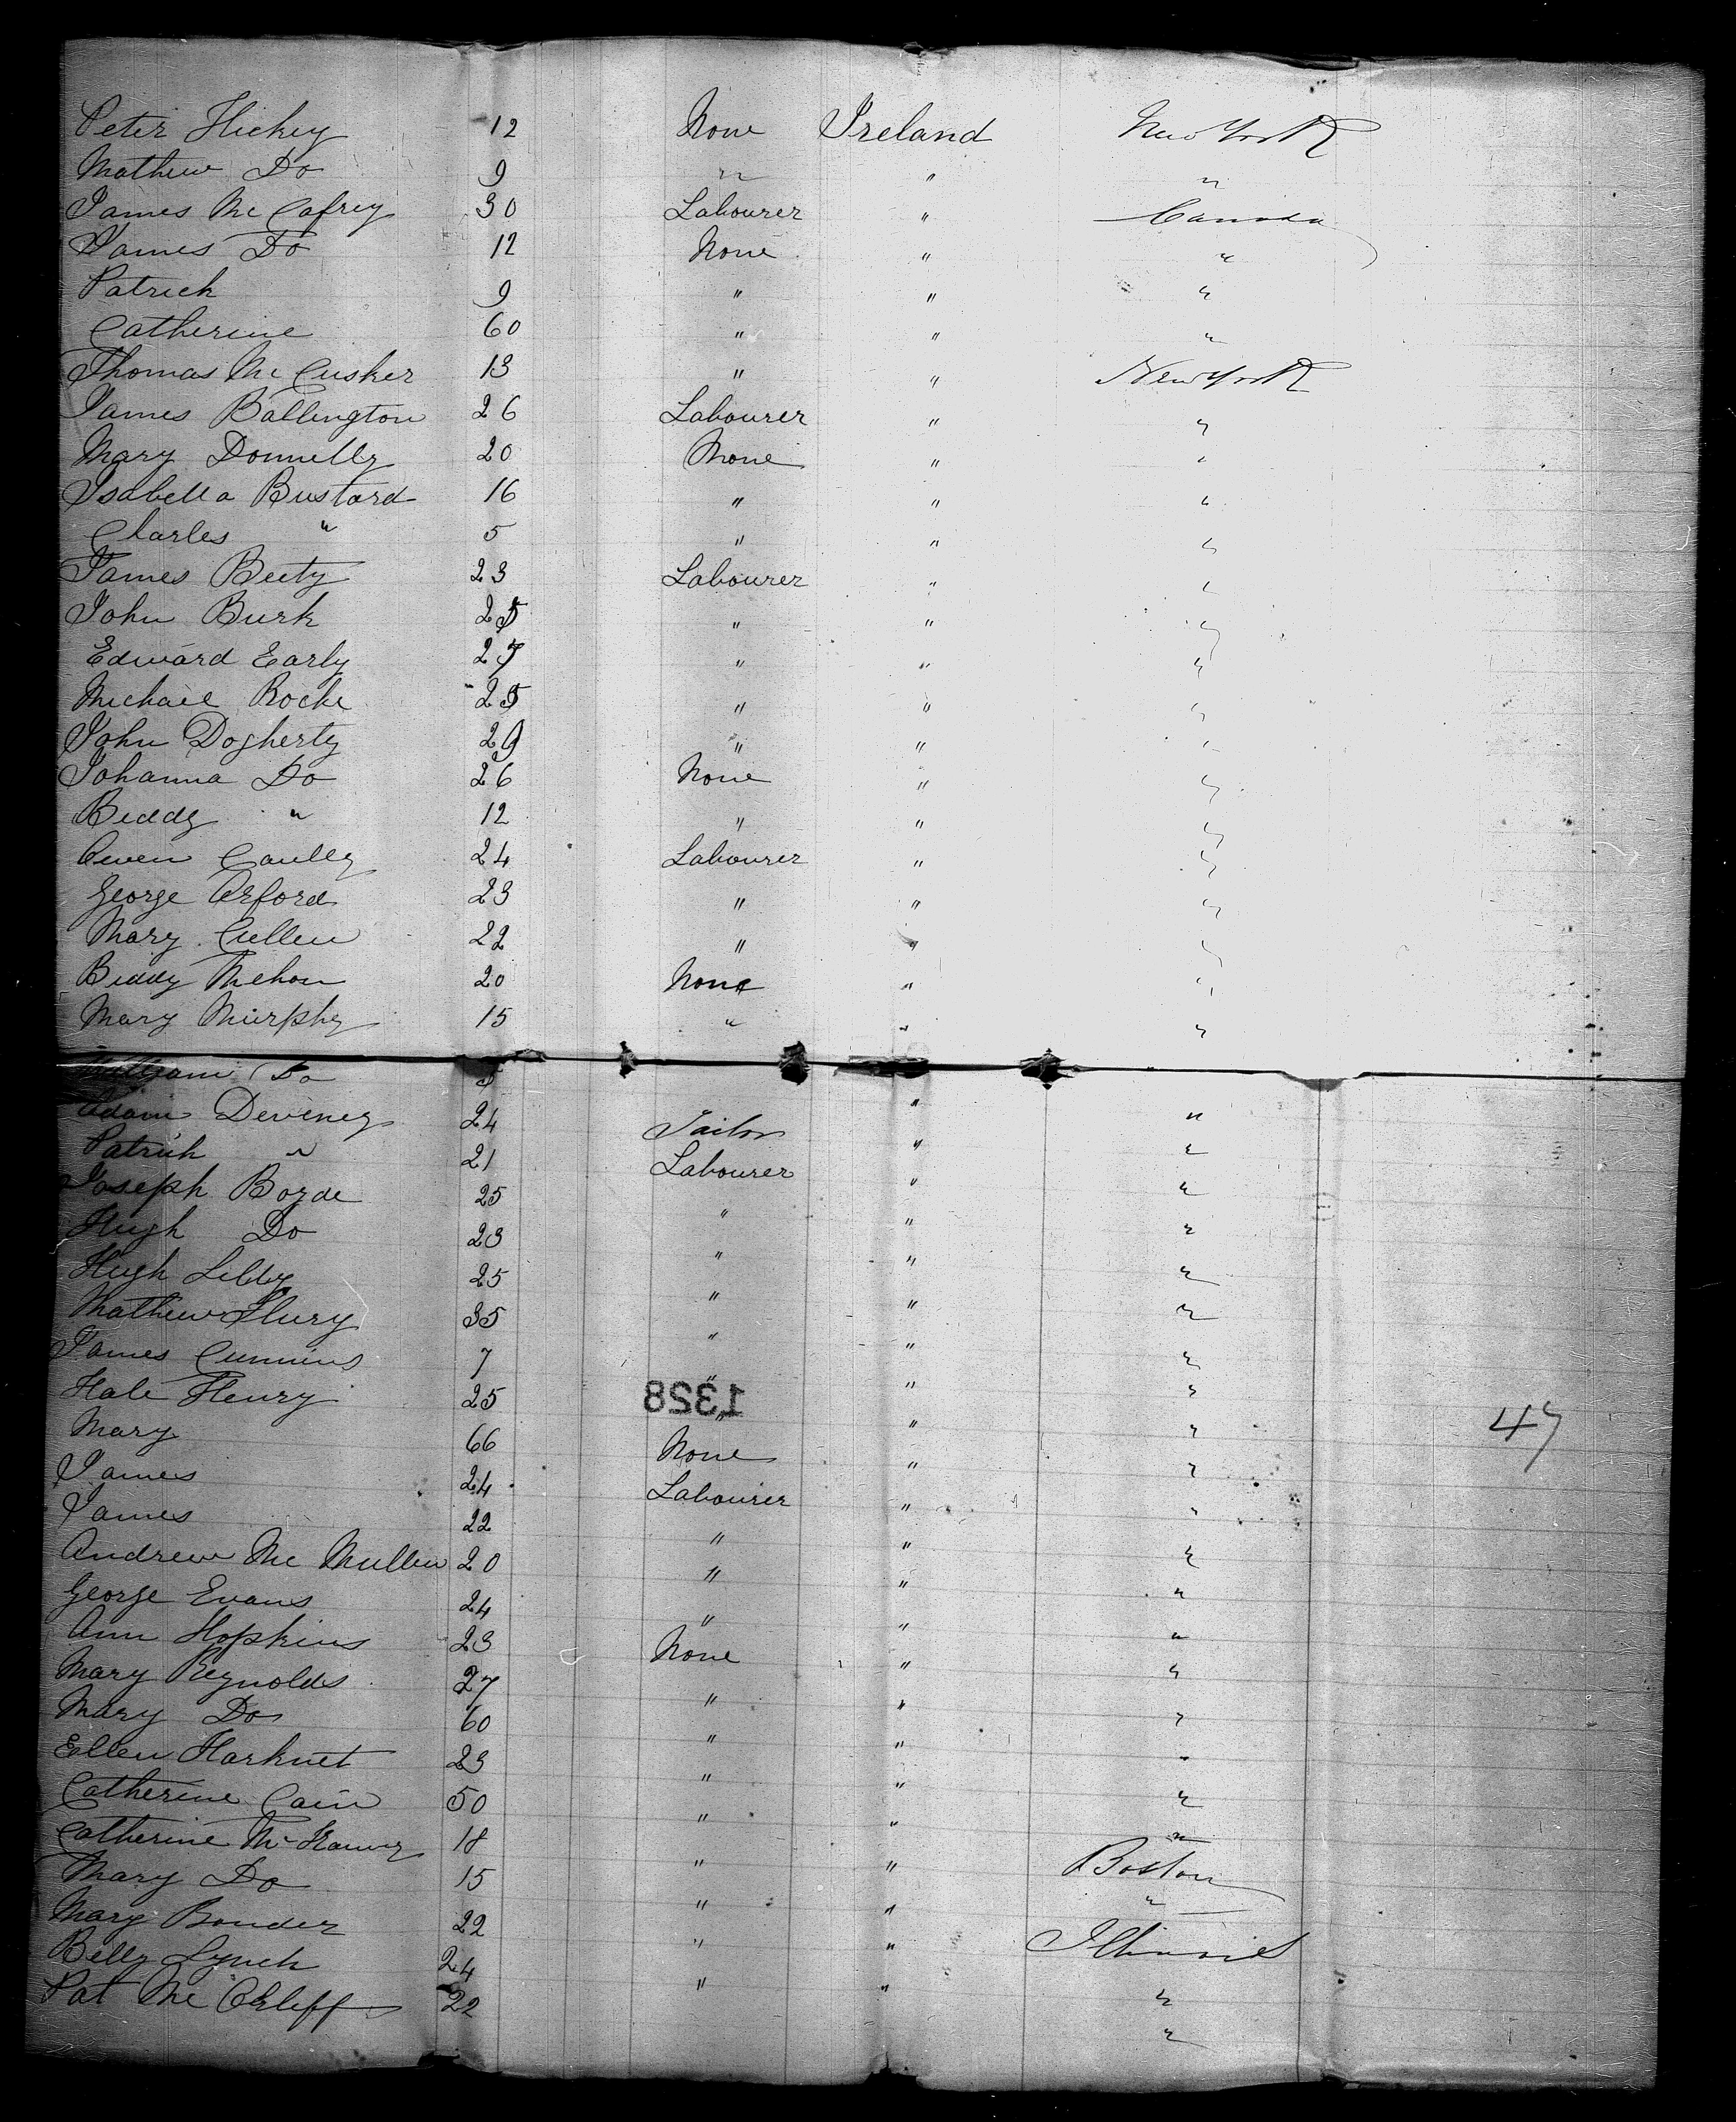 Peter Hickey 12 None Ireland New York
Mathew Do 9 " " "
James McCafrey 30 Labourer " Canada
James Do 12 None " "
Patrick 9 " " "
Catherine 60 " " "
Thomas McCusker 13 " " New York
James Ballington 26 Labourer " "
Mary Donnelly 20 None " "
Isabella Bustard 16 " " "
Charles " 5 " " "
James Beety 23 Labourer " "
John Burk 25 " " "
Edward Early 27 " " "
Michael Roche 25 " " "
John Dogherty 29 " " "
Johanna Do 26 None " "
Biddy " 12 " " "
Owen Caully 24 Labourer " "
George Orford 23 " " "
Mary Cullen 22 " " "
Biddy Mehon 20 None " "
Mary Murphy 15 " " "
William Do 5
Adam Deveney 24 Tailor " "
Patrick " 21 Labourer " "
Joseph Bogde 25 " " "
Hugh Do 23 " " "
Hugh Lilly 25 " " "
Mathew Flury 35 " " "
James Cummins 7 " " "
Hale Fleury 25 " " "
1328
47
Mary 66 None " "
James 24 Labourer " "
James 22 " " "
Andrew McMullen 20 " " "
George Evans 24 " " "
Ann Hopkins 23 None " "
Mary Reynolds 27 " " "
Mary Do 60 " " "
Ellen Harknet 23 " " "
Catherine Cain 50 " " "
Catherine Mc 18 " " Boston
Mary Do 15 " " "
Mary Bonder 22 " " Illinois
Belly Lynch 24 " " "
Pat Mc 22 "